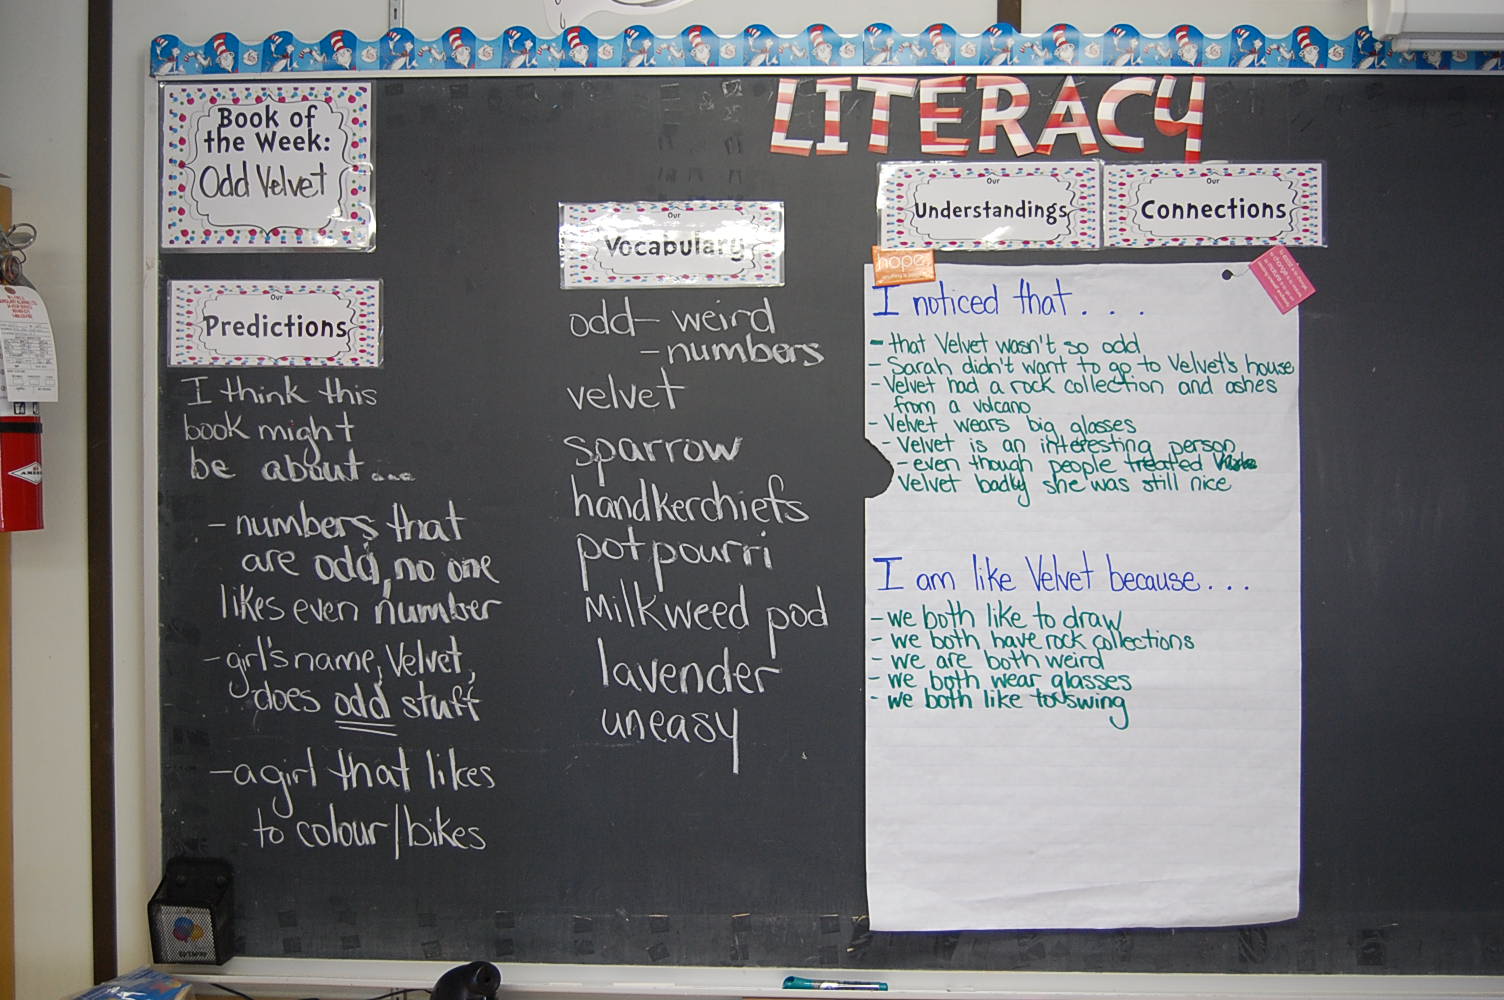 LITERACY
Book of
the Week:
Odd Velvet
Our
Predictions
I think this
book might
be about...
- numbers that
are odd, no one
likes even number
- girl's name, Velvet,
does odd stuff
- a girl that likes
to colour/bikes
Our
Vocabulary
odd - weird
- numbers
velvet
sparrow
handkerchiefs
potpourri
milkweed pod
lavender
uneasy
Our
Understandings
Our
Connections
hope
I noticed that . . .
- that Velvet wasn't so odd
- Sarah didn't want to go to Velvet's house
- Velvet had a rock collection and ashes
from a volcano
- Velvet wears big glasses
- Velvet is an interesting person
- even though people treated
Velvet badly she was still nice
I am like Velvet because . . .
- we both like to draw
- we both have rock collections
- we are both weird
- we both wear glasses
- we both like to swing